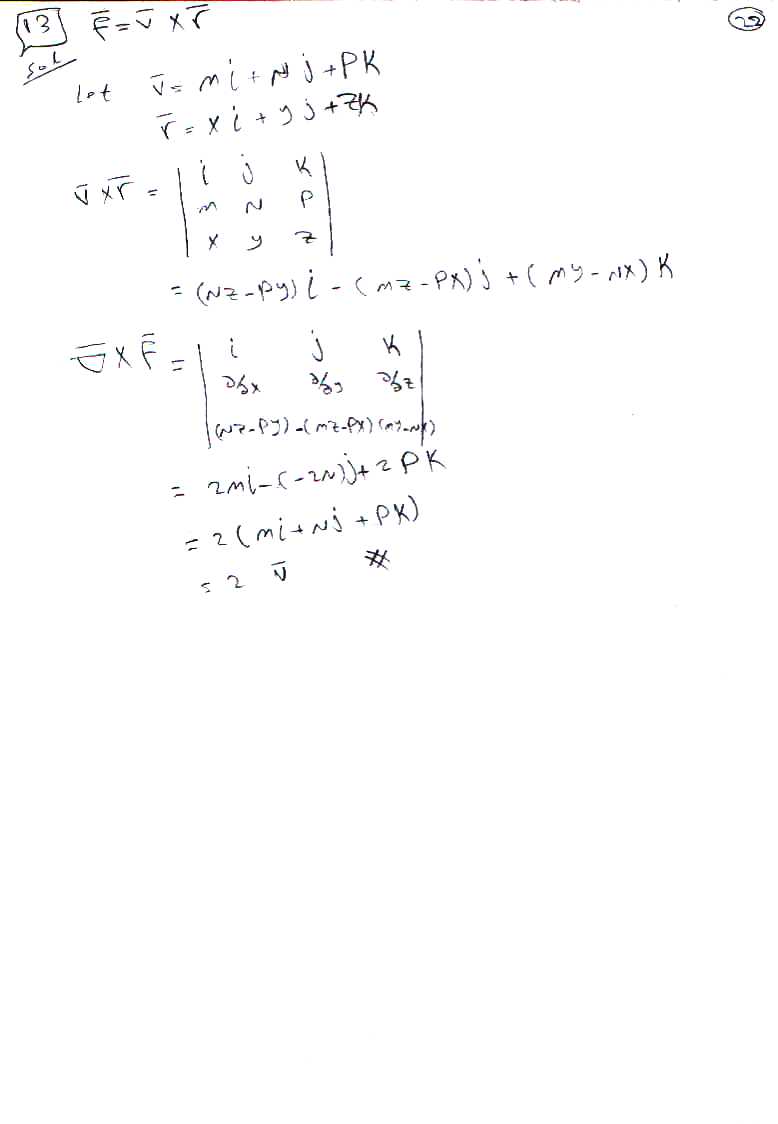 13 F̄ = v̄ × r̄
22
Sol
Let v̄ = mi + Nj + PK
r̄ = xi + yj + ZK
v̄ × r̄ = | i j K |
| m N P |
| x y z |
= (Nz - Py) i - (mz - Px) j + (my - Nx) K
∇̄ × F̄ = | i j K |
| ∂/∂x ∂/∂y ∂/∂z |
| (Nz-Py) -(mz-Px) (my-Nx) |
= 2mi - (-2N)j + 2PK
= 2(mi + Nj + PK)
= 2 v̄ #